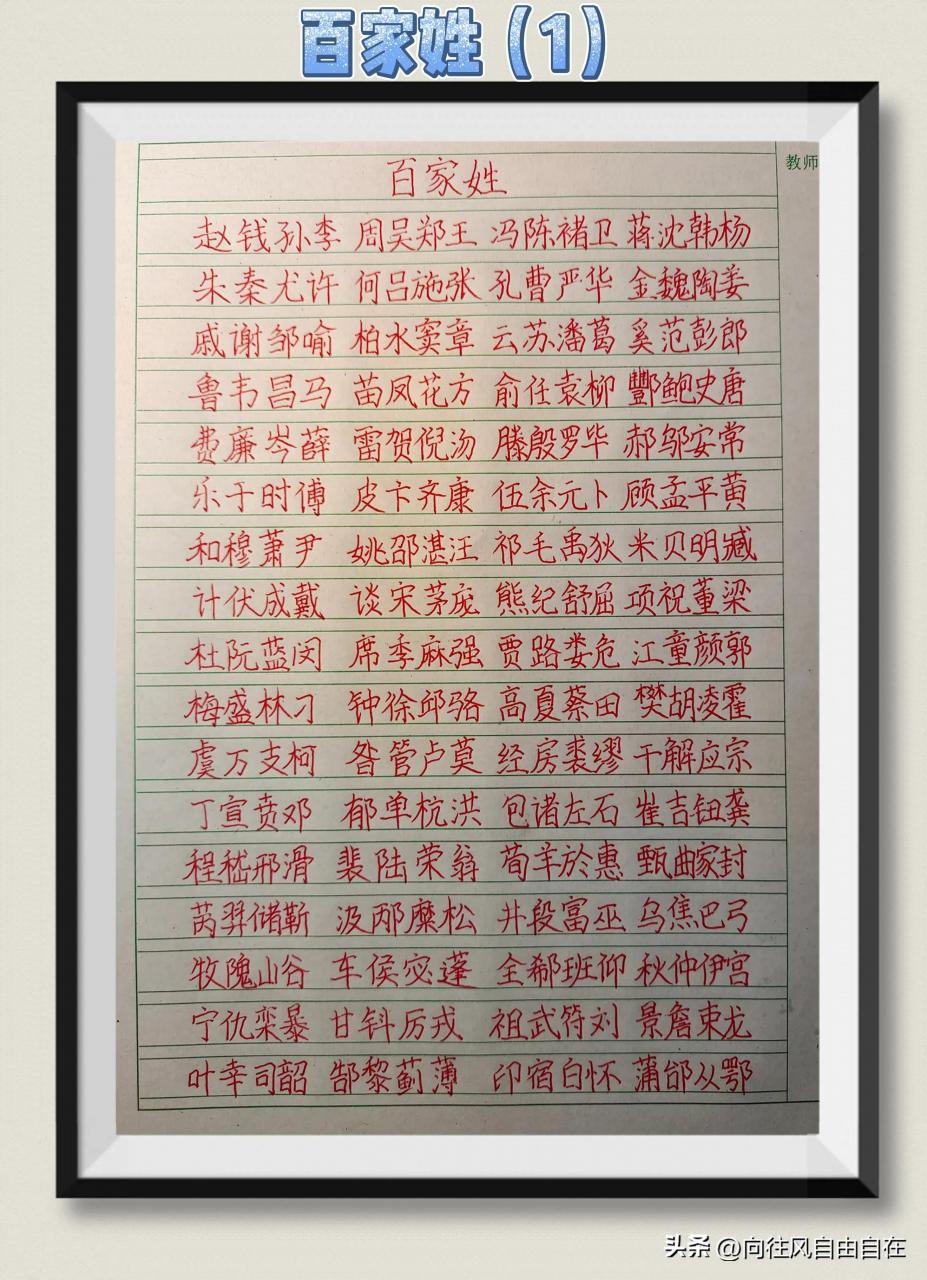 百家姓（1）
教师
百家姓
赵钱孙李 周吴郑王 冯陈褚卫 蒋沈韩杨
朱秦尤许 何吕施张 孔曹严华 金魏陶姜
戚谢邹喻 柏水窦章 云苏潘葛 奚范彭郎
鲁韦昌马 苗凤花方 俞任袁柳 酆鲍史唐
费廉岑薛 雷贺倪汤 滕殷罗毕 郝邬安常
乐于时傅 皮卞齐康 伍余元卜 顾孟平黄
和穆萧尹 姚邵湛汪 祁毛禹狄 米贝明臧
计伏成戴 谈宋茅庞 熊纪舒屈 项祝董梁
杜阮蓝闵 席季麻强 贾路娄危 江童颜郭
梅盛林刁 钟徐邱骆 高夏蔡田 樊胡凌霍
虞万支柯 昝管卢莫 经房裘缪 干解应宗
丁宣贲邓 郁单杭洪 包诸左石 崔吉钮龚
程嵇邢滑 裴陆荣翁 荀羊於惠 甄曲家封
芮羿储靳 汲邴糜松 井段富巫 乌焦巴弓
牧隗山谷 车侯宓蓬 全郗班仰 秋仲伊宫
宁仇栾暴 甘钭厉戎 祖武符刘 景詹束龙
叶幸司韶 郜黎蓟薄 印宿白怀 蒲邰从鄂
头条 @向往风自由自在